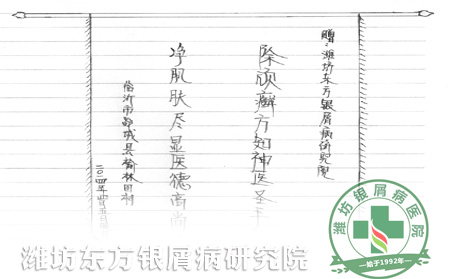 赠：潍坊东方银屑病研究院
除顽癣方知神医圣手
净肌肤尽显医德高尚
临沂市郯城县
二〇一四年
潍坊银屑病医院
始于1992年
潍坊东方银屑病研究院